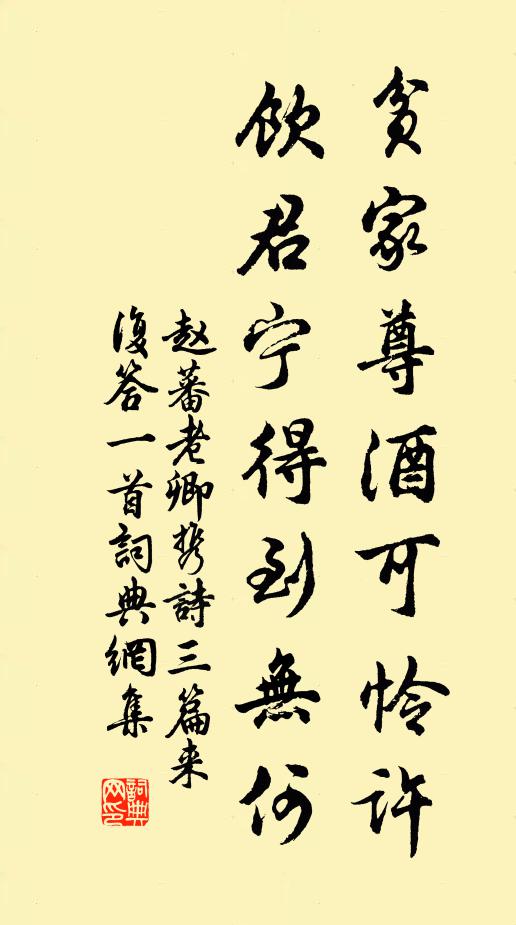 貧家尊酒可怜许
飲君宁得到無何
赵蕃老卿携詩三篇来
復答一首詞典網集
詞典
网印